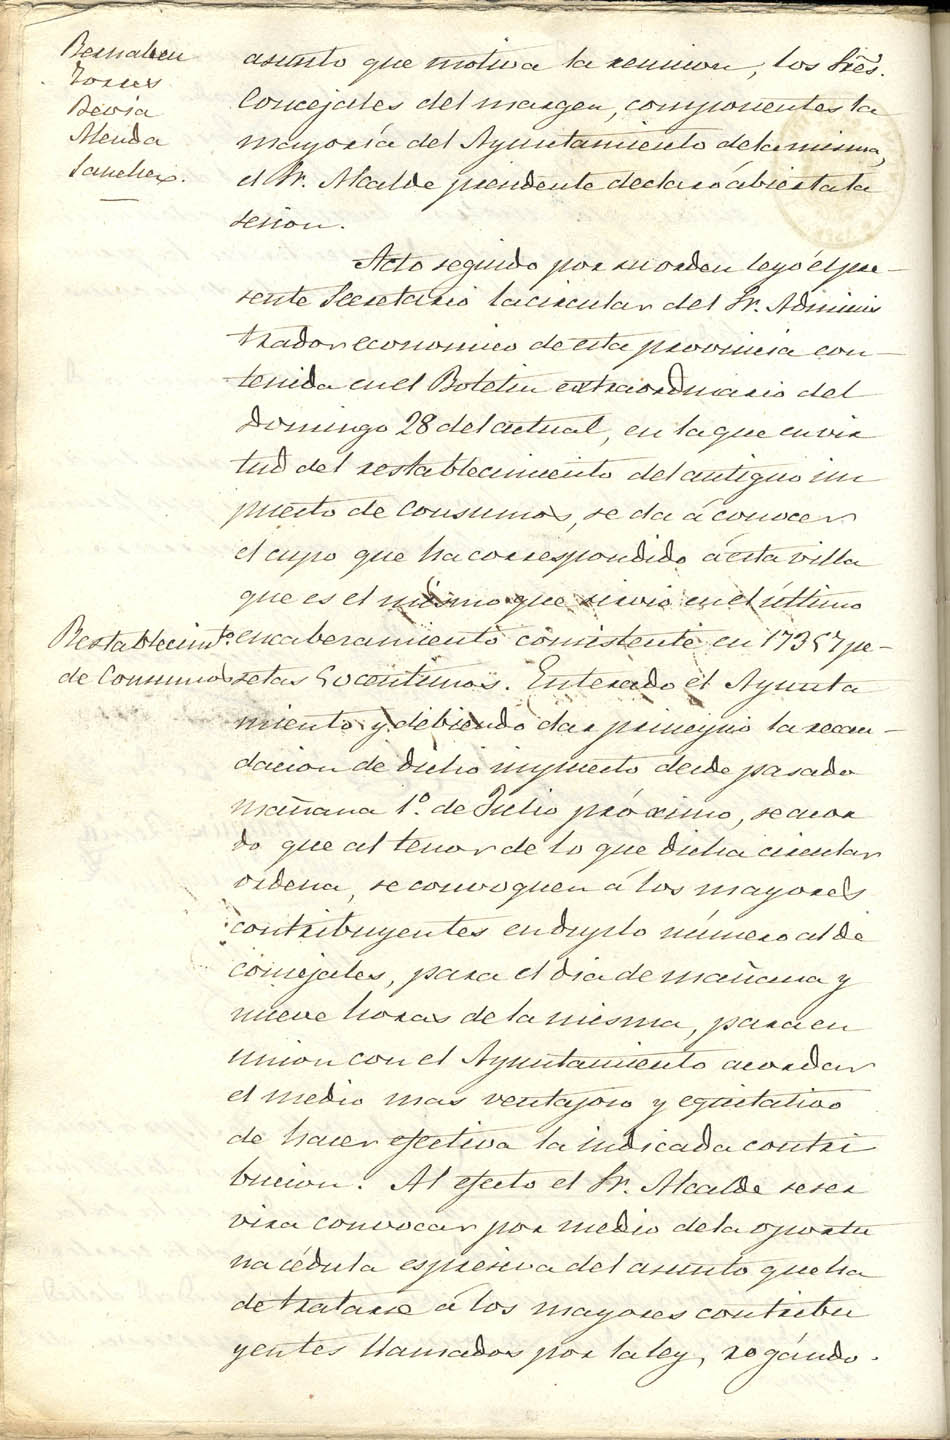 Bernabeu
Torres
Bevia
Alenda
Sanchez.
asunto que motiva la reunion, los Sres.
Concejales del margen, componentes la
mayoría del Ayuntamiento de la misma,
el Sr. Alcalde presidente declaró abierta la
sesion.
Acto seguido por su orden leyó el pre-
sente Secretario la circular del Sr. Adminis
trador economico de esta provincia con-
tenida en el Boletin extraordinario del
Domingo 28 del actual, en la que en vir
tud del restablecimiento del antiguo im
puesto de Consumos, se da á conocer
el cupo que ha correspondido á esta villa
que es el mismo que sirvió en el último
Restablecimto.
de Consumos
encabezamiento consistente en 17357 pe-
setas 50 centimos. Enterado el Ayunta
miento y debiendo dar principio la recau-
dacion de dicho impuesto desde pasado
mañana 1º. de Julio próximo, se acor
do que al tenor de lo que dicha circular
ordena, se convoquen a los mayores
contribuyentes en duplo número al de
concejales, para el dia de mañana y
nueve horas de la misma, para en
union con el Ayuntamiento acordar
el medio mas ventajoso y equitativo
de hacer efectiva la indicada contri
bucion. Al efecto el Sr. Alcalde se ser
vira convocar por medio de la oportu
na cédula espresiva del asunto que ha
de tratarse á los mayores contribu
yentes llamados por la ley, rogándo.